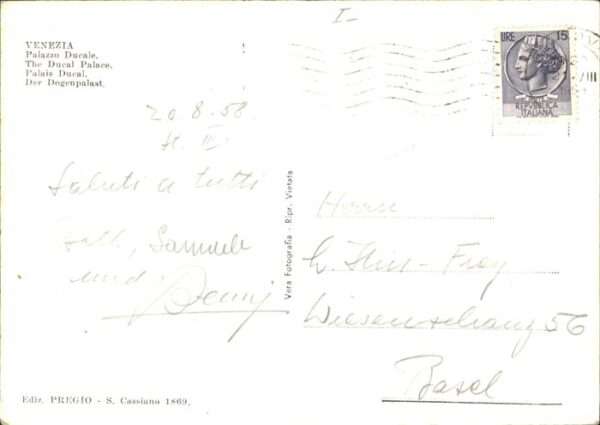 I-
VENEZIA
Palazzo Ducale.
The Ducal Palace.
Palais Ducal.
Der Dogenpalast.
20.8.58
Saluti a tutti
Samuele
und
Vera Fotografia - Ripr. Vietata
LIRE 15
REPUBBLICA
ITALIANA
VIII
Herrn
56
Basel
Ediz. PREGIO - S. Cassiano 1869.